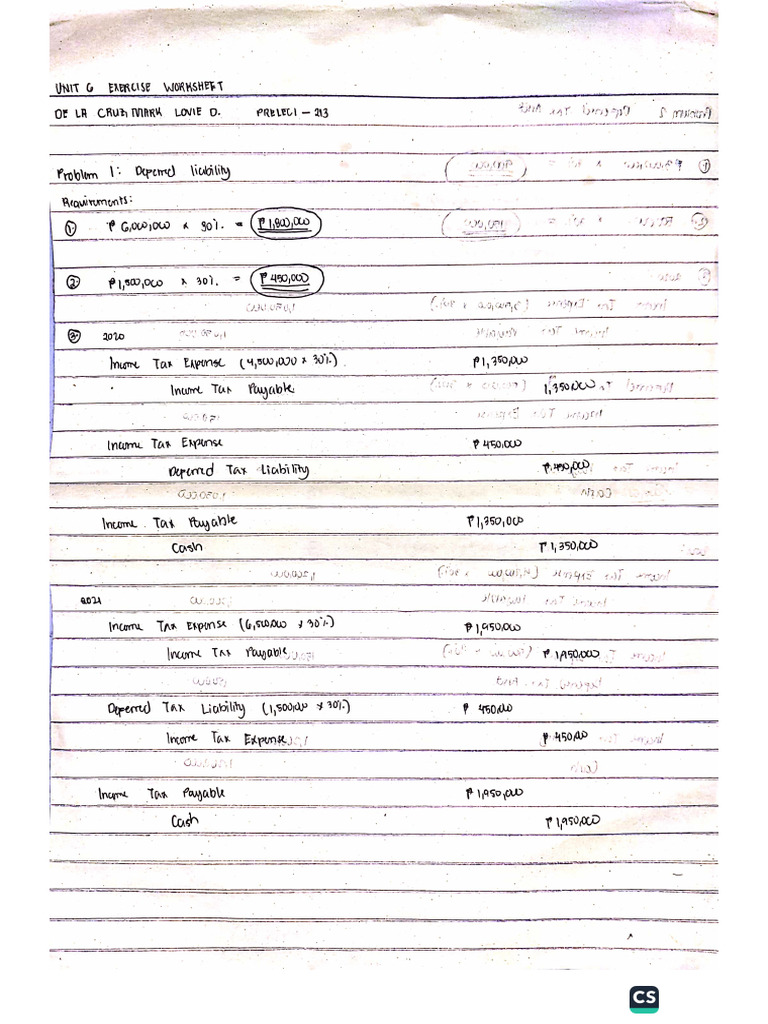 UNIT 6 EXERCISE WORKSHEET
DE LA CRUZ, MARK LOVIE D. PRELEC1 - 213
Problem 1: Deferred liability
Requirements:
1. ₱ 6,000,000 x 30% = ₱ 1,800,000
2. ₱ 1,500,000 x 30% = ₱ 450,000
3. 2020
Income Tax Expense (4,500,000 x 30%) ₱ 1,350,000
Income Tax Payable 1,350,000
Income Tax Expense ₱ 450,000
Deferred Tax Liability ₱ 450,000
Income Tax Payable ₱ 1,350,000
Cash ₱ 1,350,000
2021
Income Tax Expense (6,500,000 x 30%) ₱ 1,950,000
Income Tax Payable ₱ 1,950,000
Deferred Tax Liability (1,500,000 x 30%) ₱ 450,000
Income Tax Expense ₱ 450,000
Income Tax Payable ₱ 1,950,000
Cash ₱ 1,950,000
CS